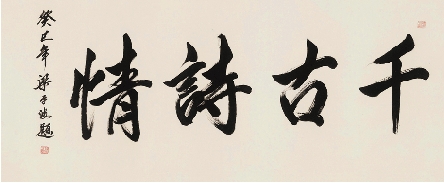 千古詩情
癸巳年 梁子迪題